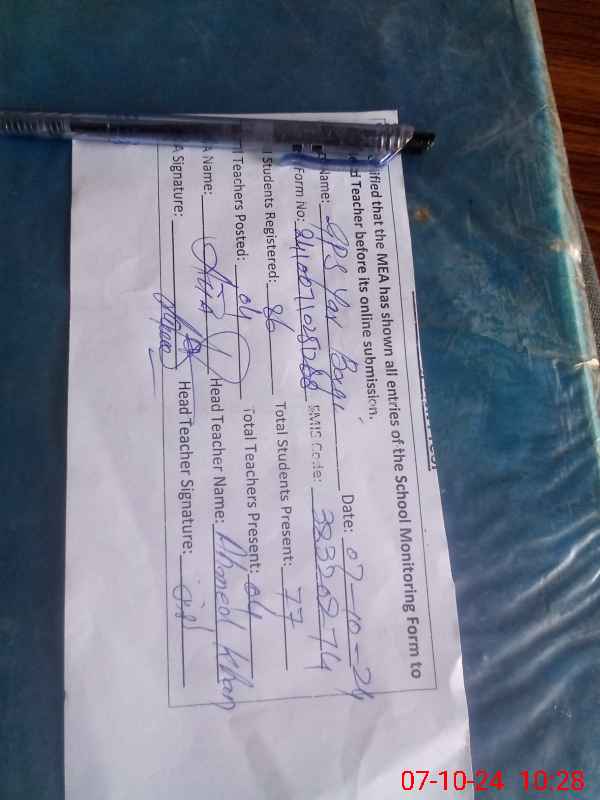 ified that the MEA has shown all entries of the School Monitoring Form to
ead Teacher before its online submission.
Name: GPS Yar Baqi Date: 07-10-24
Form No: EMIS Code:
l Students Registered: 86 Total Students Present: 77
l Teachers Posted: 04 Total Teachers Present: 04
A Name: Head Teacher Name: Ahmed Khan
A Signature: Head Teacher Signature:
07-10-24 10:28